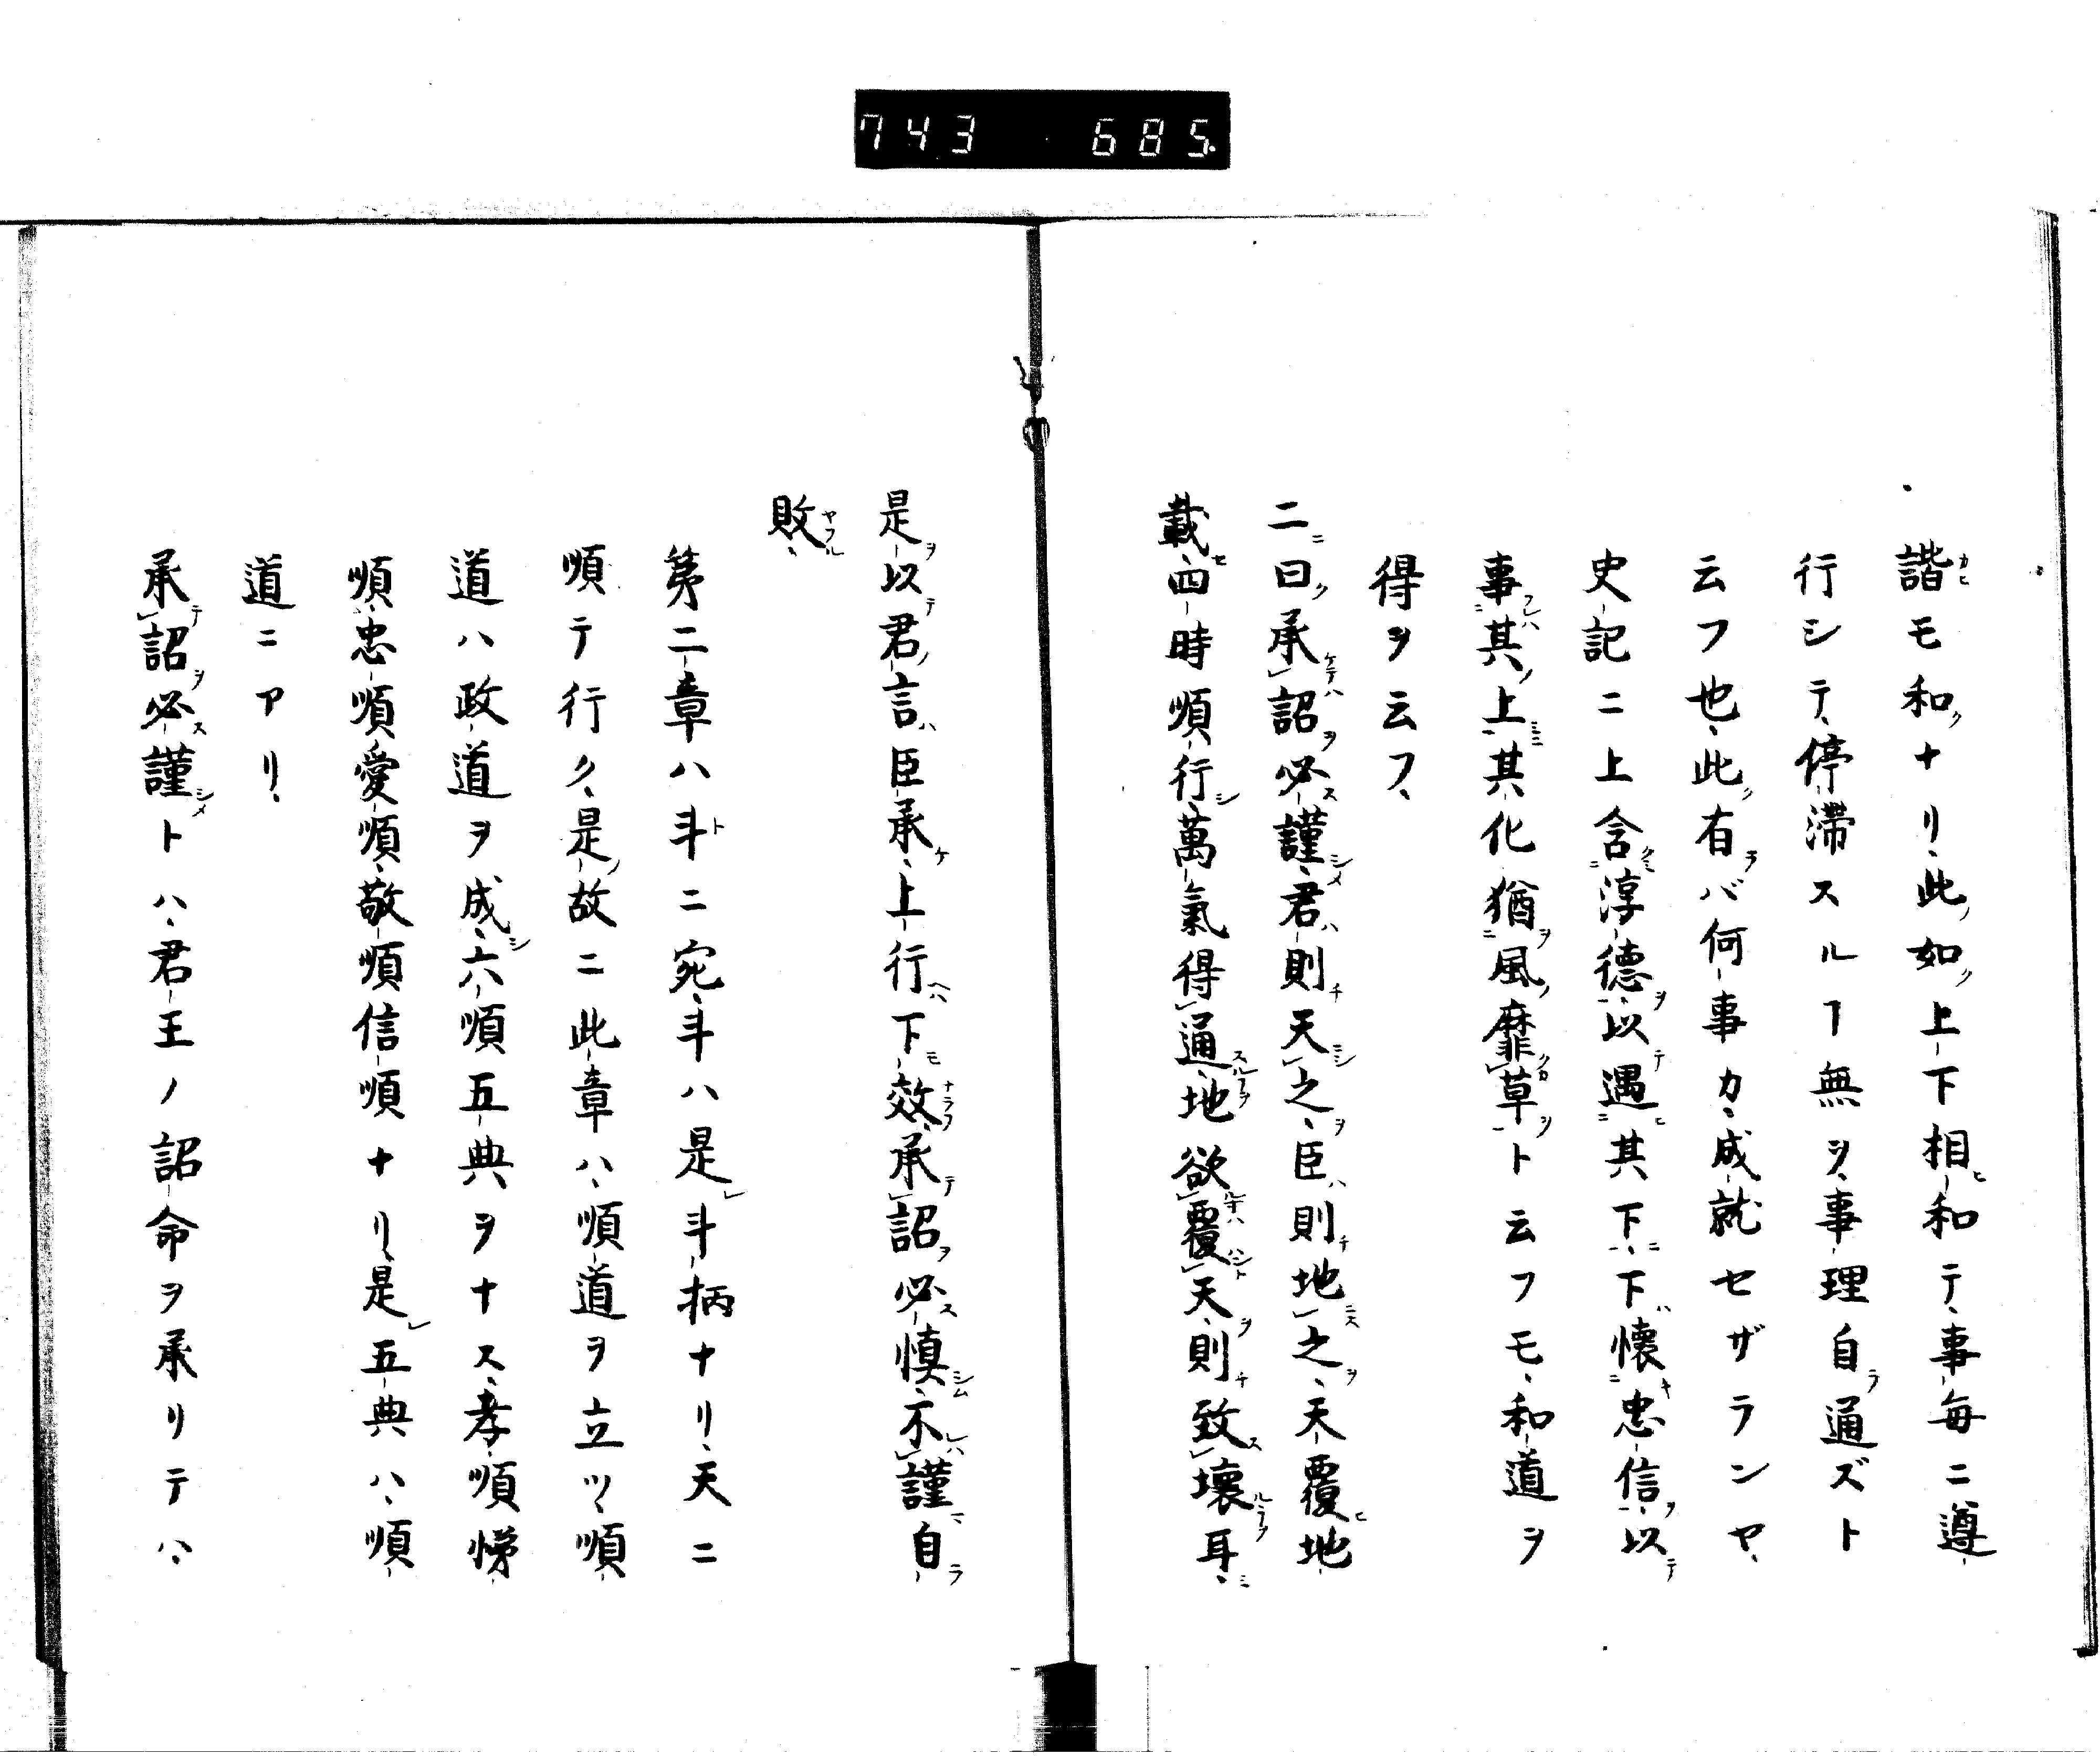 743 685
諧モ和ナリ、此如上下相和テ、事毎ニ遵
行シテ、停滞スルヿ無シ、事理自通ズト
云フ也、此有バ何事カ、成就セザランヤ、
史記ニ上含淳徳以遇其下、下懐忠信以
事其上、其化猶風靡草ト云フモ、和道ヲ
得ヲ云フ、
二曰承詔必謹、君則天之、臣則地之、天覆地
載四時順行、萬氣得通、地欲覆天、則致壊耳、
是以君言臣承、上行下效、承詔必慎、不謹自
敗、
第二章ハ斗ニ宛、斗ハ是斗柄ナリ、天ニ
順テ行ク、是故ニ此章ハ、順道ヲ立ツ、順
道ハ政道ヲ成、六順五典ヲナス、孝順悌
順、忠順愛順、敬順信順ナリ、是五典ハ、順
道ニアリ、
承詔必謹トハ、君王ノ詔命ヲ承リテハ、